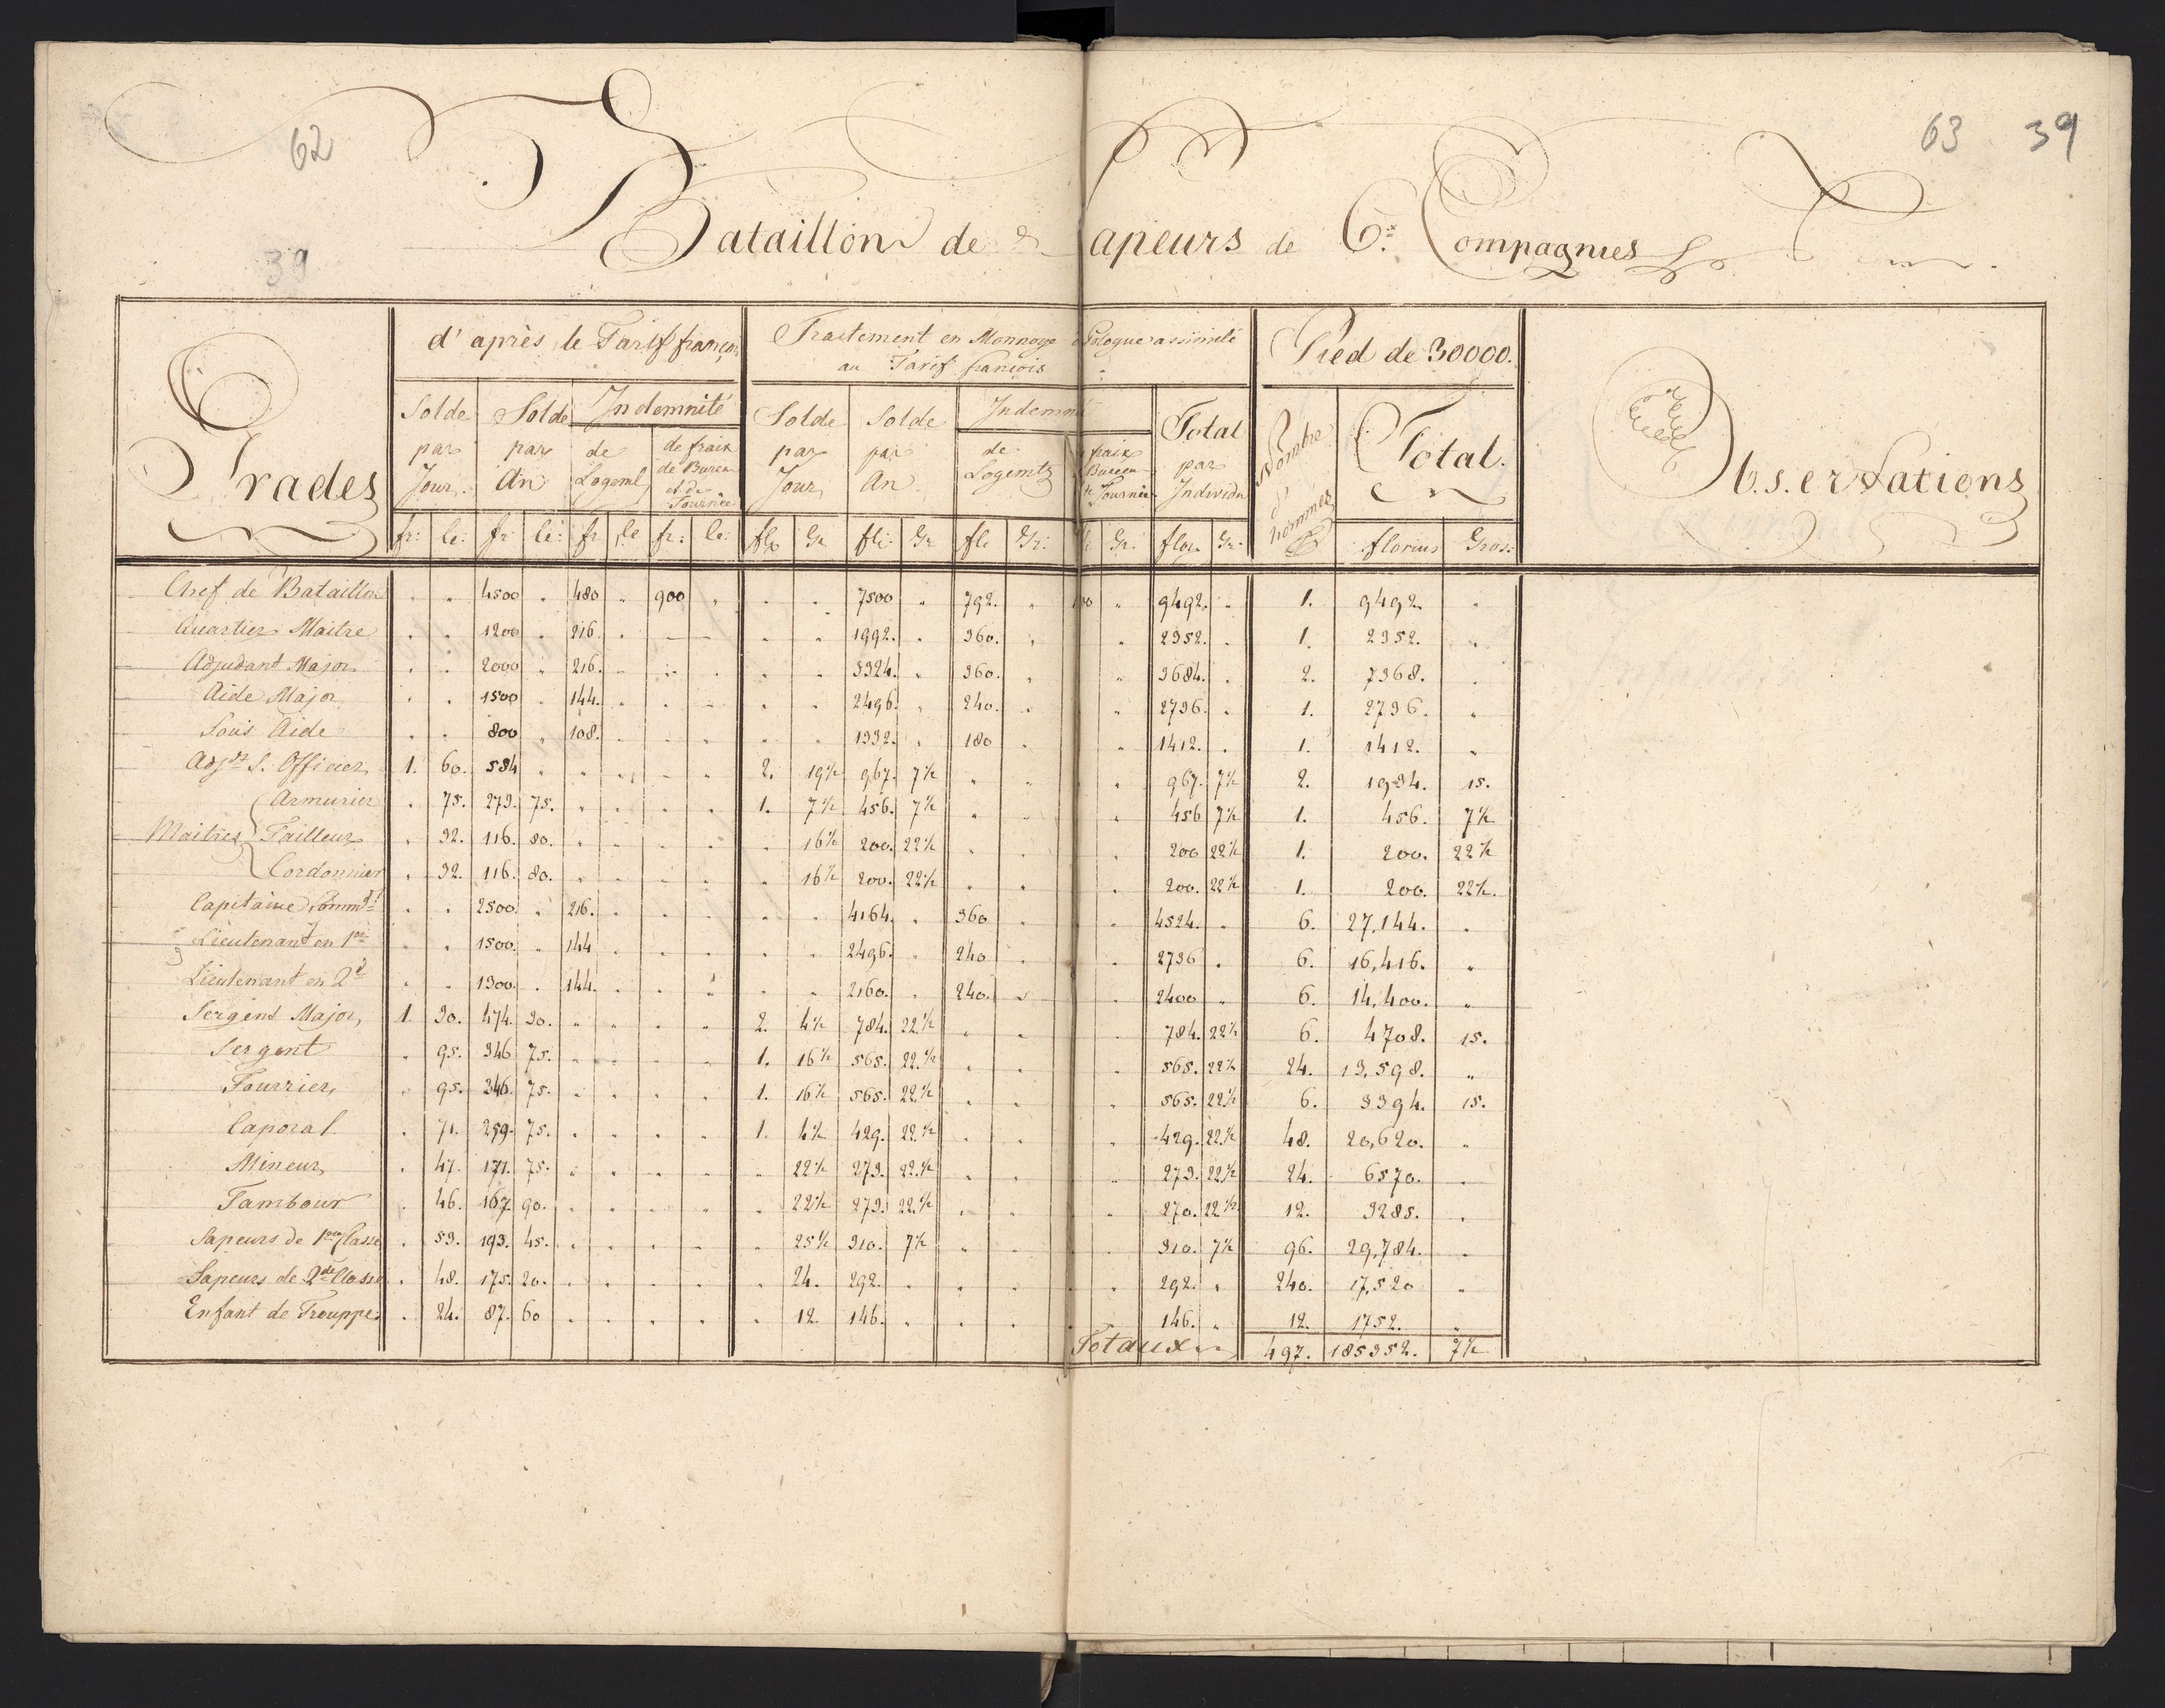 62
63 39
39
Bataillon de Sapeurs de 6.x Compagnies
Grades
d'après le Tarif françois
Traitement en Monnoye de Pologne assimilé
au Tarif francois
Pied de 30000.
Observations
Solde par Jour
Solde par An
Indemnité
de Logemt
de frais de Bureau et de Tournée
Solde par Jour
Solde par An
Indemnité
de Logemts
fraix Bureau de Tournée
Total par Individu
Nombre d'hommes
Total.
fr: le: fr: le: fr le fr: le: flo Gr fl: Gr fl: Gr: fl: Gr: flor. Gr. florins Gros:
Chef de Bataillon . „ 4500 „ 480 „ 900 „ . . 7500 „ 792. „ „ 9492. „ 1. 9492. „
Quartier Maitre . „ 1200 „ 216. . — — . „ 1992. . 360. „ „ 2352. . 1. 2352. „
Adjudant Major . „ 2000 „ 216. . „ . . . 3324. „ 360. „ „ 3684. . 2. 7368. .
Aide Major . . 1500 . 144. . . . . . 2496. „ 240. . „ 2736. . 1. 2736. „
Sous Aide . . 800 „ 108. . . . . . 1332. . 180 . „ 1412. . 1. 1412. „
Adjdt S. Officier 1. 60. 584 „ „ . . . 2. 19½ 967. 7½ „ „ „ 967. 7½ 2. 1934. 15.
Maitres
Armurier . 75. 273. 75. . . . . 1. 7½ 456. 7½ „ . „ 456 7½ 1. 456. 7½
Tailleur . 32. 116. 80. . . . . . 16½ 200. 22½ . . . 200 22½ 1. 200. 22½
Cordonnier . 32. 116. 80. . . . . . 16½ 200. 22½ . . . 200. 22½ 1. 200. 22½.
Capitaine Commdt . . 2500. „ 216. . . . . . 4164. . 360 . „ 4524. . 6. 27,144. .
Lieutenant en 1er „ „ 1500. . 144 . . . . . 2496. „ 240 . . 2736 . 6. 16,416. „
Lieutenant en 2d „ „ 1300. . 144. . . . „ . 2160. . 240. . . 2400 „ 6. 14,400. „
Sergent Major, 1. 30. 474. 30. . . . „ 2. 4½ 784. 22.½ „ . . 784. 22½ 6. 4708. 15.
Sergent „ 95. 346 75. . . . . 1. 16½ 565. 22.½ . . . 565. 22½ 24. 13.598. „
Fourrier, . 95. 346. 75. . . . . 1. 16½ 565. 22.½ . . . 565. 22½ 6. 3394. 15.
Caporal . 71. 259. 75. . . . . 1. 4½ 429. 22.½ . . . 429. 22.½ 48. 20,620. „
Mineur, . 47. 171. 75. . . . . „ 22½ 273. 22.½ . . . 273. 22½ 24. 6570. .
Tambour . 46. 167. 90. . . . . . 22½ 273. 22.½ . . . 270. 22½ 12. 3285. .
Sapeurs de 1re Classe . 53. 193. 45. . . . . „ 25½ 310. 7½ . . . 310. 7½ 96. 29,784. .
Sapeurs de 2de Classe . 48. 175. 20. . . . . . 24. 292. . . . . 292. „ 240. 17,520 „
Enfant de Trouppe. . 24. 87. 60 . . . . . 12. 146. . . . . 146. „ 12. 1752. „
Totaux 497. 185352. 7½